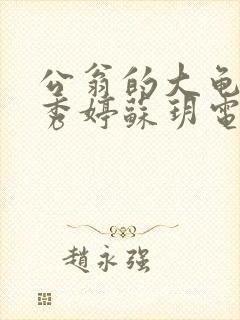 公翁的大龟
秀婷蘇玥電
趙永强